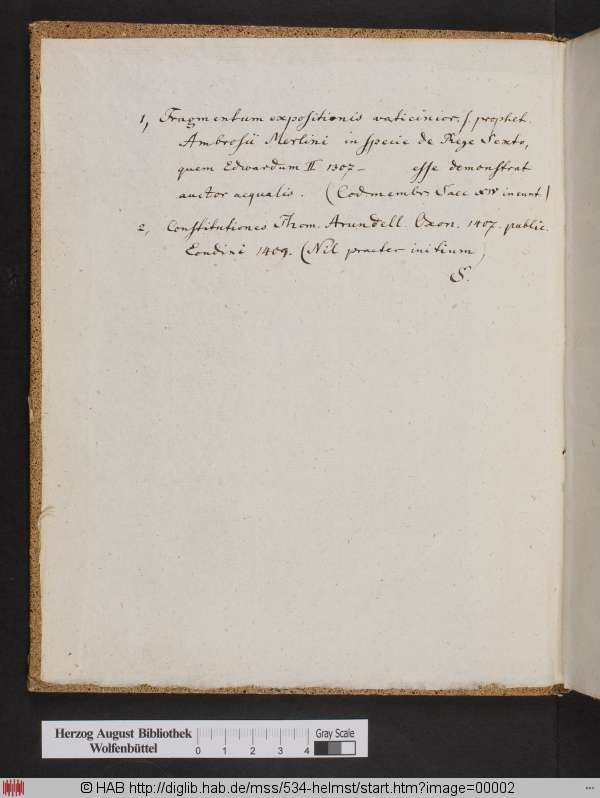 1, Fragmentum expositionis vaticinior. s. prophet.
Ambrosii Merlini in specie de Rege Sexto,
quem Edwardum II 1307 – esse demonstrat
auctor aequalis. (Cod. membr. Saec XV ineunt)
2, Constitutiones Thom. Arundell. Oxon. 1407. public.
Londini 1409. (Nil praeter initium)
S.
Herzog August Bibliothek
Wolfenbüttel
0 1 2 3 4
Gray Scale
© HAB http://diglib.hab.de/mss/534-helmst/start.htm?image=00002